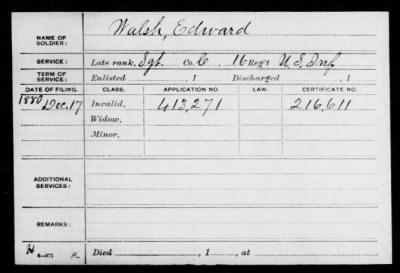 NAME OF SOLDIER: Walsh, Edward
SERVICE: Late rank, Sgt. Co. C, 16 Reg't U.S. Inf.
TERM OF SERVICE: Enlisted , 1 Discharged , 1
DATE OF FILING. CLASS. APPLICATION NO. LAW. CERTIFICATE NO.
1880 Dec. 17 Invalid, 413,271 216,611
Widow,
Minor,
ADDITIONAL SERVICES:
REMARKS:
Died , 1 , at